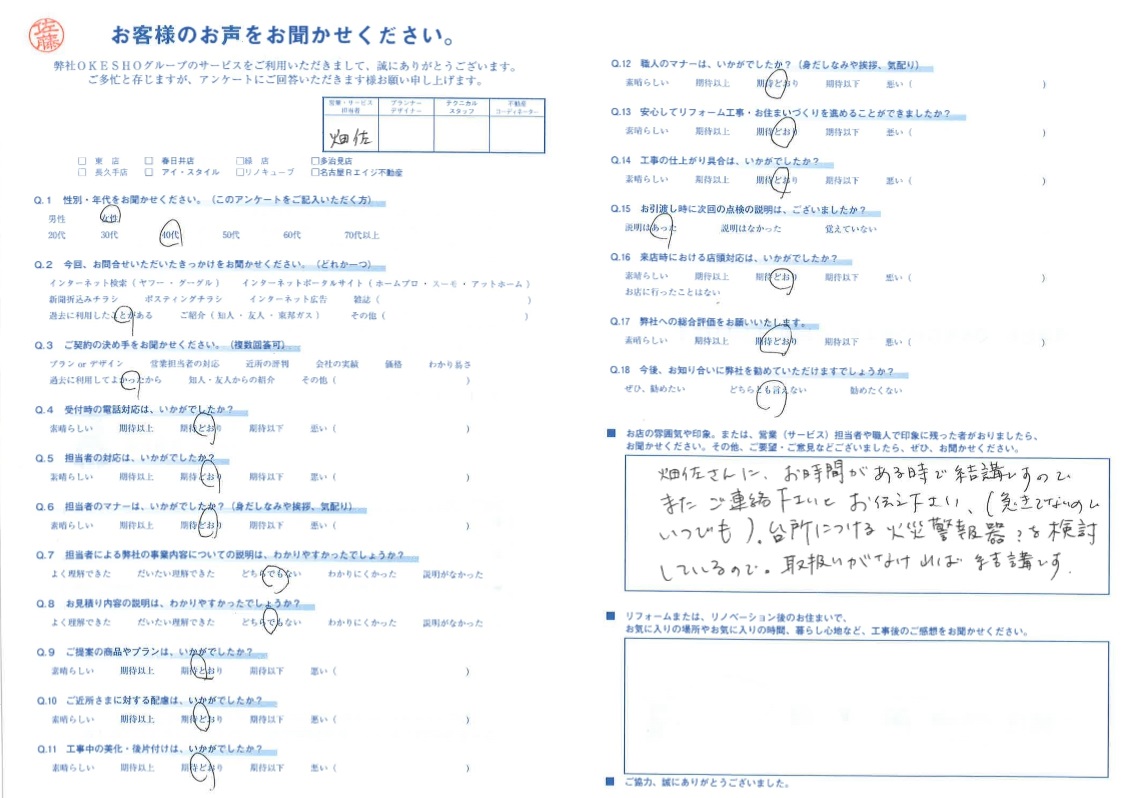 佐藤
お客様のお声をお聞かせください。
弊社OKESHOグループのサービスをご利用いただきまして、誠にありがとうございます。
ご多忙と存じますが、アンケートにご回答いただきます様お願い申し上げます。
営業・サービス担当者 プランナーデザイナー テクニカルスタッフ 不動産コーディネーター
畑佐
□ 東 店 □ 春日井店 □緑 店 □多治見店
□ 長久手店 □ アイ・スタイル □リノキューブ □名古屋Rエイジ不動産
Q.1 性別・年代をお聞かせください。（このアンケートをご記入いただく方）
男性 女性
20代 30代 40代 50代 60代 70代以上
Q.2 今回、お問合せいただいたきっかけをお聞かせください。（どれか一つ）
インターネット検索（ ヤフー・グーグル ） インターネットポータルサイト（ ホームプロ・スーモ・アットホーム ）
新聞折込みチラシ ポスティングチラシ インターネット広告 雑誌（ ）
過去に利用したことがある ご紹介（ 知人・友人・東邦ガス ） その他（ ）
Q.3 ご契約の決め手をお聞かせください。（複数回答可）
プラン or デザイン 営業担当者の対応 近所の評判 会社の実績 価格 わかり易さ
過去に利用してよかったから 知人・友人からの紹介 その他（ ）
Q.4 受付時の電話対応は、いかがでしたか？
素晴らしい 期待以上 期待どおり 期待以下 悪い（ ）
Q.5 担当者の対応は、いかがでしたか？
素晴らしい 期待以上 期待どおり 期待以下 悪い（ ）
Q.6 担当者のマナーは、いかがでしたか？（身だしなみや挨拶、気配り）
素晴らしい 期待以上 期待どおり 期待以下 悪い（ ）
Q.7 担当者による弊社の事業内容についての説明は、わかりやすかったでしょうか？
よく理解できた だいたい理解できた どちらでもない わかりにくかった 説明がなかった
Q.8 お見積り内容の説明は、わかりやすかったでしょうか？
よく理解できた だいたい理解できた どちらでもない わかりにくかった 説明がなかった
Q.9 ご提案の商品やプランは、いかがでしたか？
素晴らしい 期待以上 期待どおり 期待以下 悪い（ ）
Q.10 ご近所さまに対する配慮は、いかがでしたか？
素晴らしい 期待以上 期待どおり 期待以下 悪い（ ）
Q.11 工事中の美化・後片付けは、いかがでしたか？
素晴らしい 期待以上 期待どおり 期待以下 悪い（ ）
Q.12 職人のマナーは、いかがでしたか？（身だしなみや挨拶、気配り）
素晴らしい 期待以上 期待どおり 期待以下 悪い（ ）
Q.13 安心してリフォーム工事・お住まいづくりを進めることができましたか？
素晴らしい 期待以上 期待どおり 期待以下 悪い（ ）
Q.14 工事の仕上がり具合は、いかがでしたか？
素晴らしい 期待以上 期待どおり 期待以下 悪い（ ）
Q.15 お引渡し時に次回の点検の説明は、ございましたか？
説明はあった 説明はなかった 覚えていない
Q.16 来店時における店頭対応は、いかがでしたか？
素晴らしい 期待以上 期待どおり 期待以下 悪い（ ）
お店に行ったことはない
Q.17 弊社への総合評価をお願いいたします。
素晴らしい 期待以上 期待どおり 期待以下 悪い（ ）
Q.18 今後、お知り合いに弊社を勧めていただけますでしょうか？
ぜひ、勧めたい どちらとも言えない 勧めたくない
■ お店の雰囲気や印象。または、営業（サービス）担当者や職人で印象に残った者がおりましたら、
お聞かせください。その他、ご要望・ご意見などございましたら、ぜひ、お聞かせください。
畑佐さんに、お時間がある時で結講ですので
またご連絡下さいとお伝え下さい、（急きてないので
いつでも）。台所につける火災警報器？を検討
しているので。取扱いがなければ結講です.
■ リフォームまたは、リノベーション後のお住まいで、
お気に入りの場所やお気に入りの時間、暮らし心地など、工事後のご感想をお聞かせください。
■ ご協力、誠にありがとうございました。